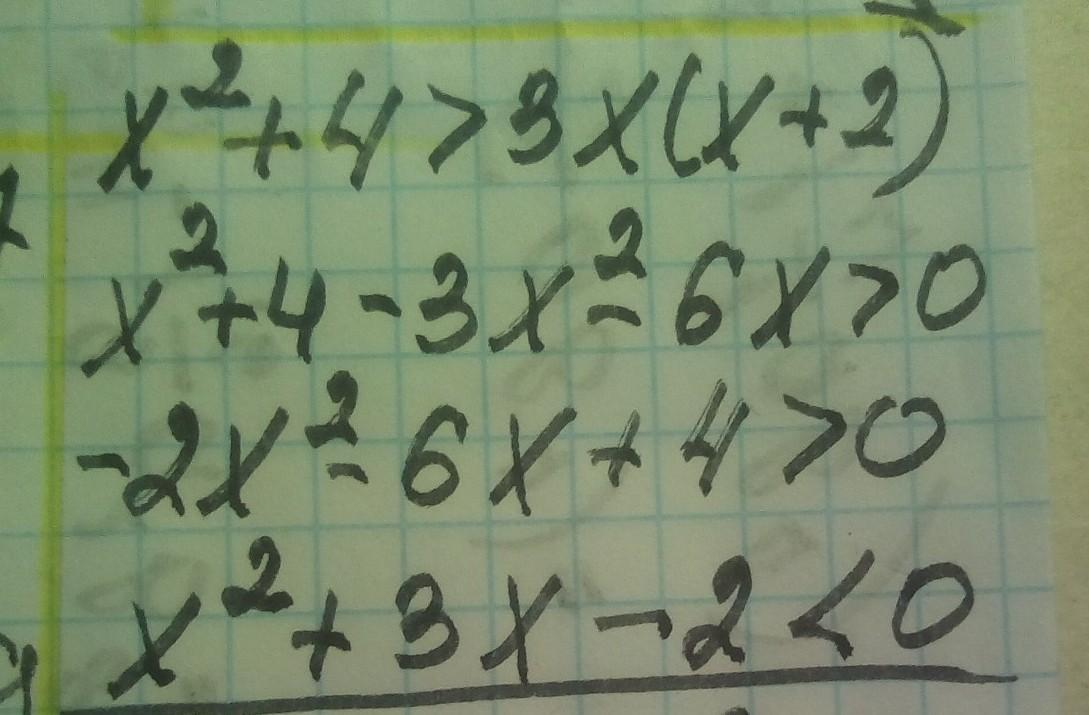 x²+4>3x(x+2)
x²+4-3x²-6x>0
-2x²-6x+4>0
x²+3x-2<0